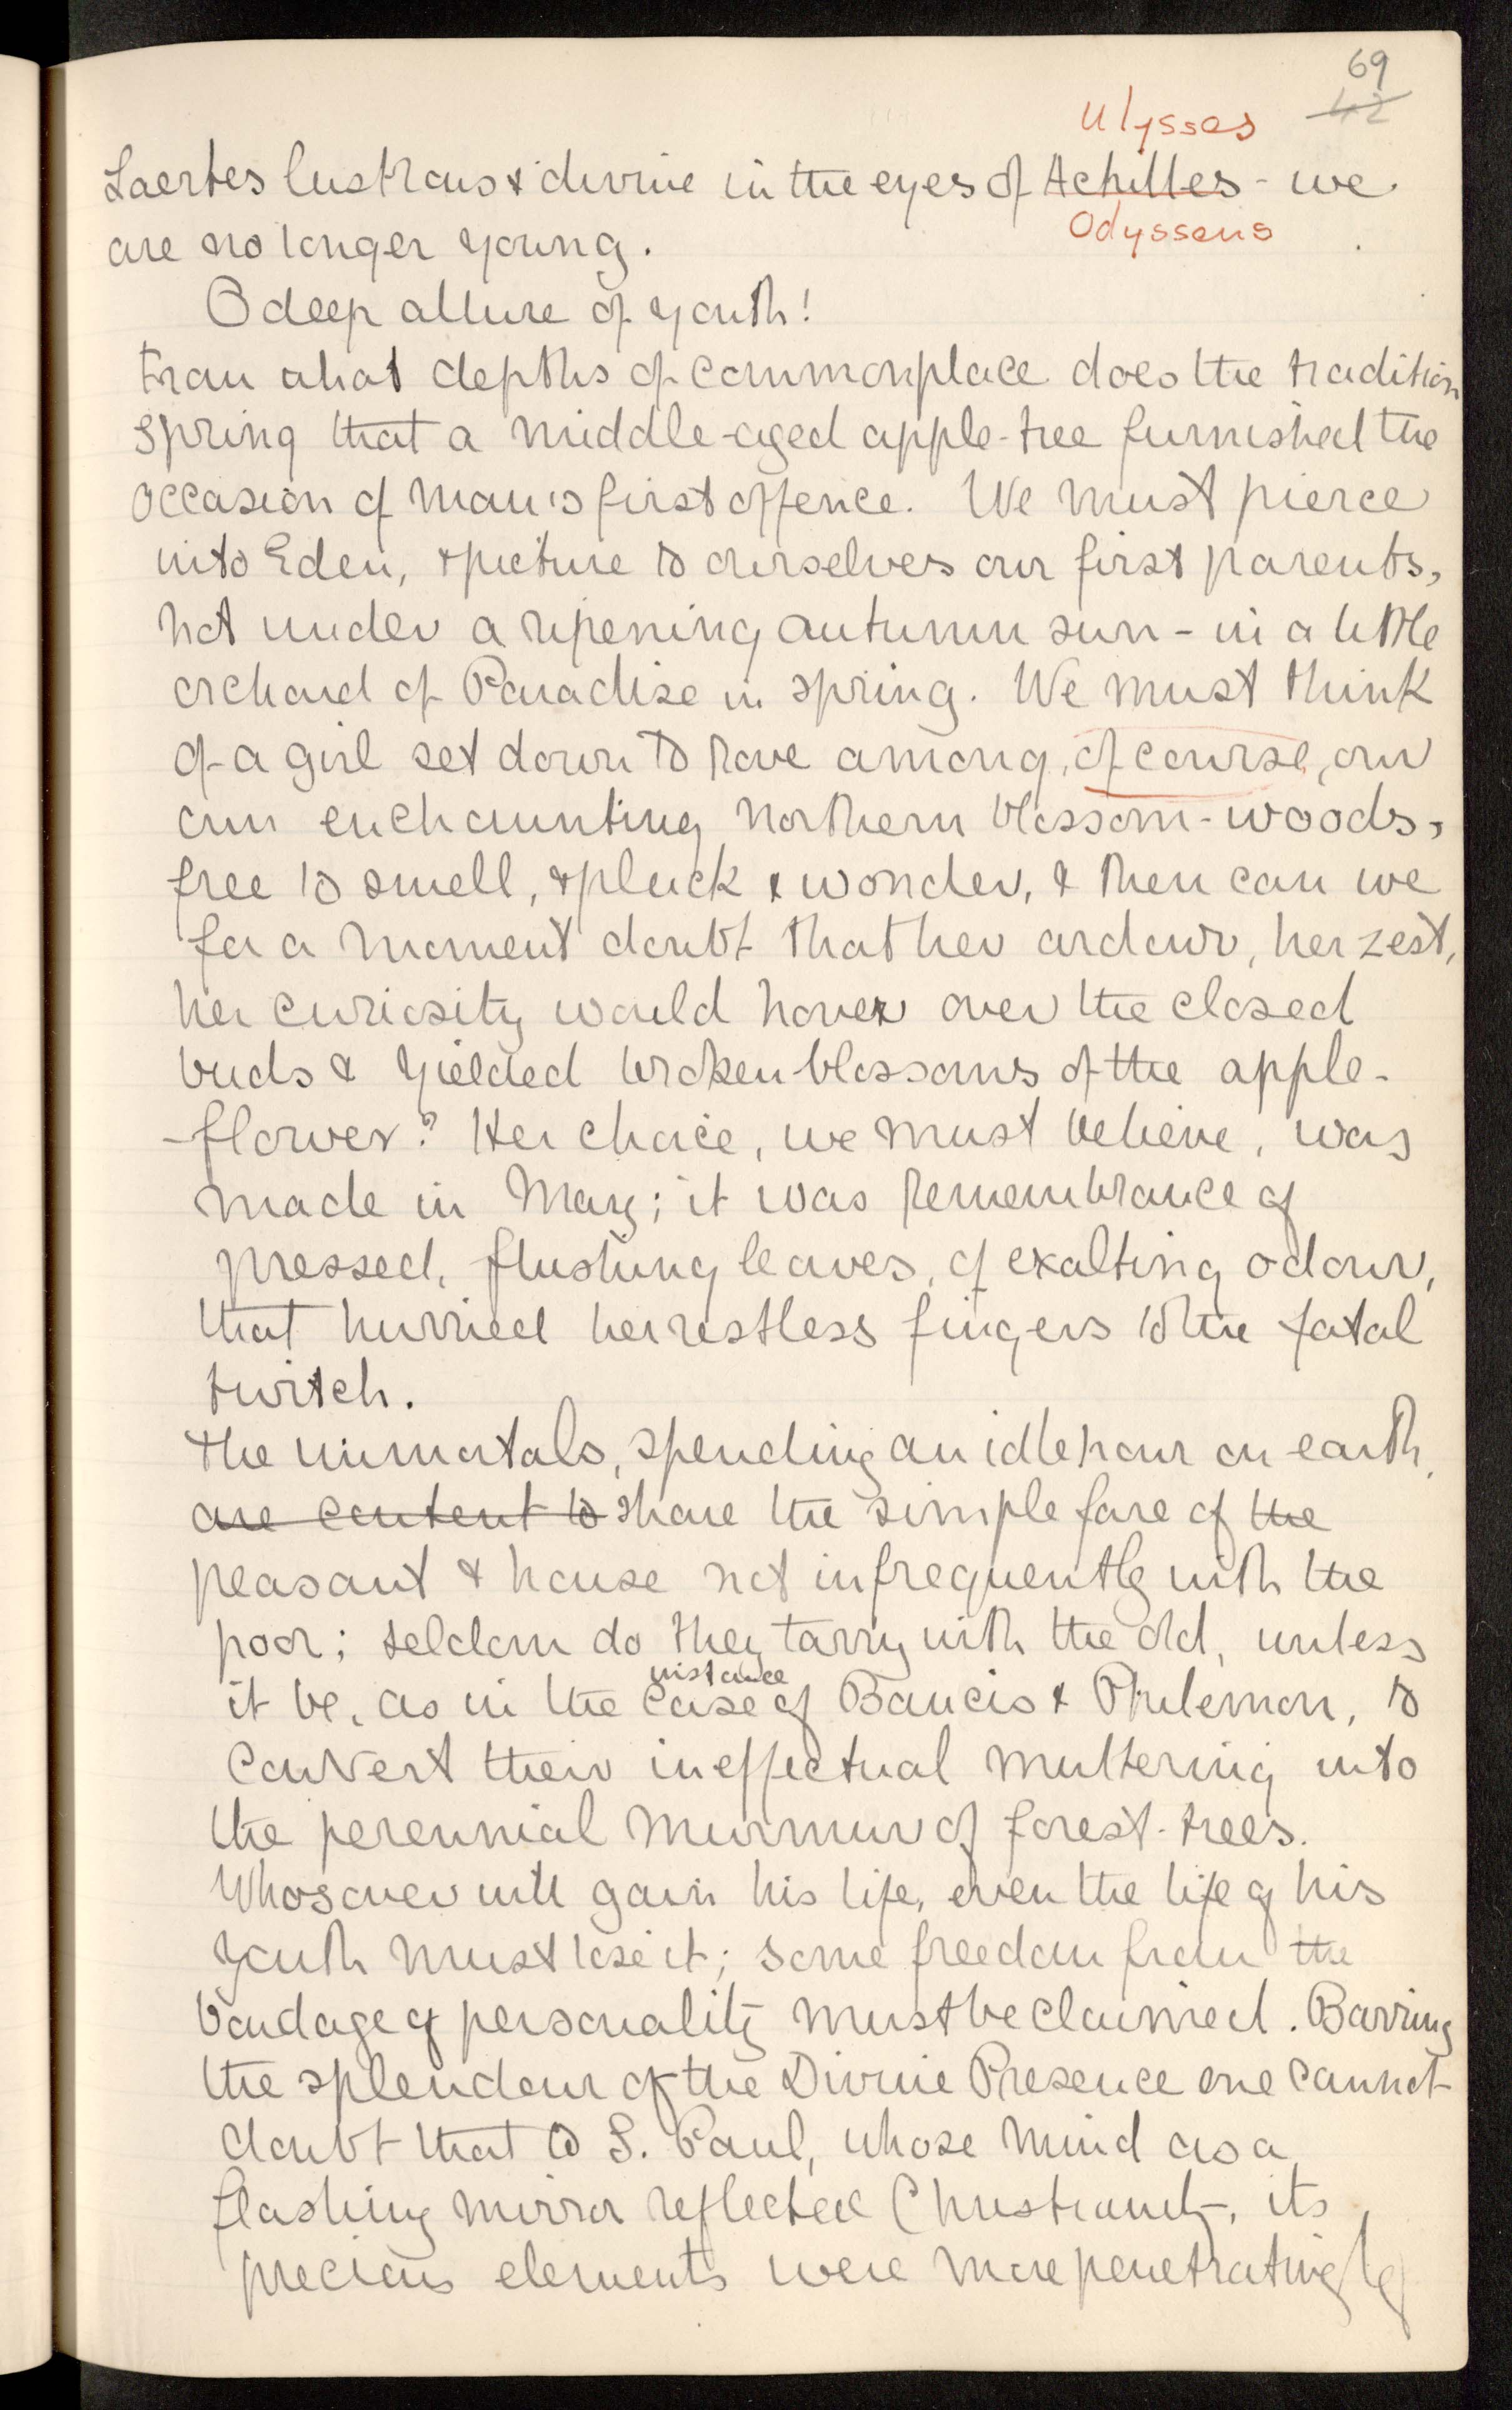 69
42
Ulysses
Laertes lustrous & divine in the eyes of Achilles - we
Odysseus
are no longer young.
O deep allure of youth!
From what depths of commonplace does the tradition
spring that a middle-aged apple-tree furnished the
occasion of man's first offence. We must pierce
into Eden, & picture to ourselves our first parents,
not under a ripening autumn sun - in a little
orchard of Paradise in spring. We must think
of a girl set down to rove among, of course, our
own enchaunting northern blossom-woods,
free to smell, & pluck & wonder, & then can we
for a moment doubt that her ardour, her zest,
her curiosity would hover over the closed
buds & yielded broken blossoms of the apple-
-flower? Her choice, we must believe, was
made in May; it was remembrance of
pressed, flushing leaves, of exalting odour,
that hurried her restless fingers to the fatal
twitch.
The immortals, spending an idle hour on earth,
are content to share the simple fare of the
peasant & house not infrequently with the
poor; seldom do they tarry with the old, unless
instance
it be, as in the case of Baucis & Philemon, to
convert their ineffectual muttering into
the perennial murmur of forest-trees.
Whosoever will gain his life, even the life of his
youth must lose it; some freedom from the
bondage of personality must be claimed. Barring
the splendour of the Divine Presence one cannot
doubt that to S. Paul, whose mind as a
flashing mirror reflected Christianity, its
precious elements were more penetratingly